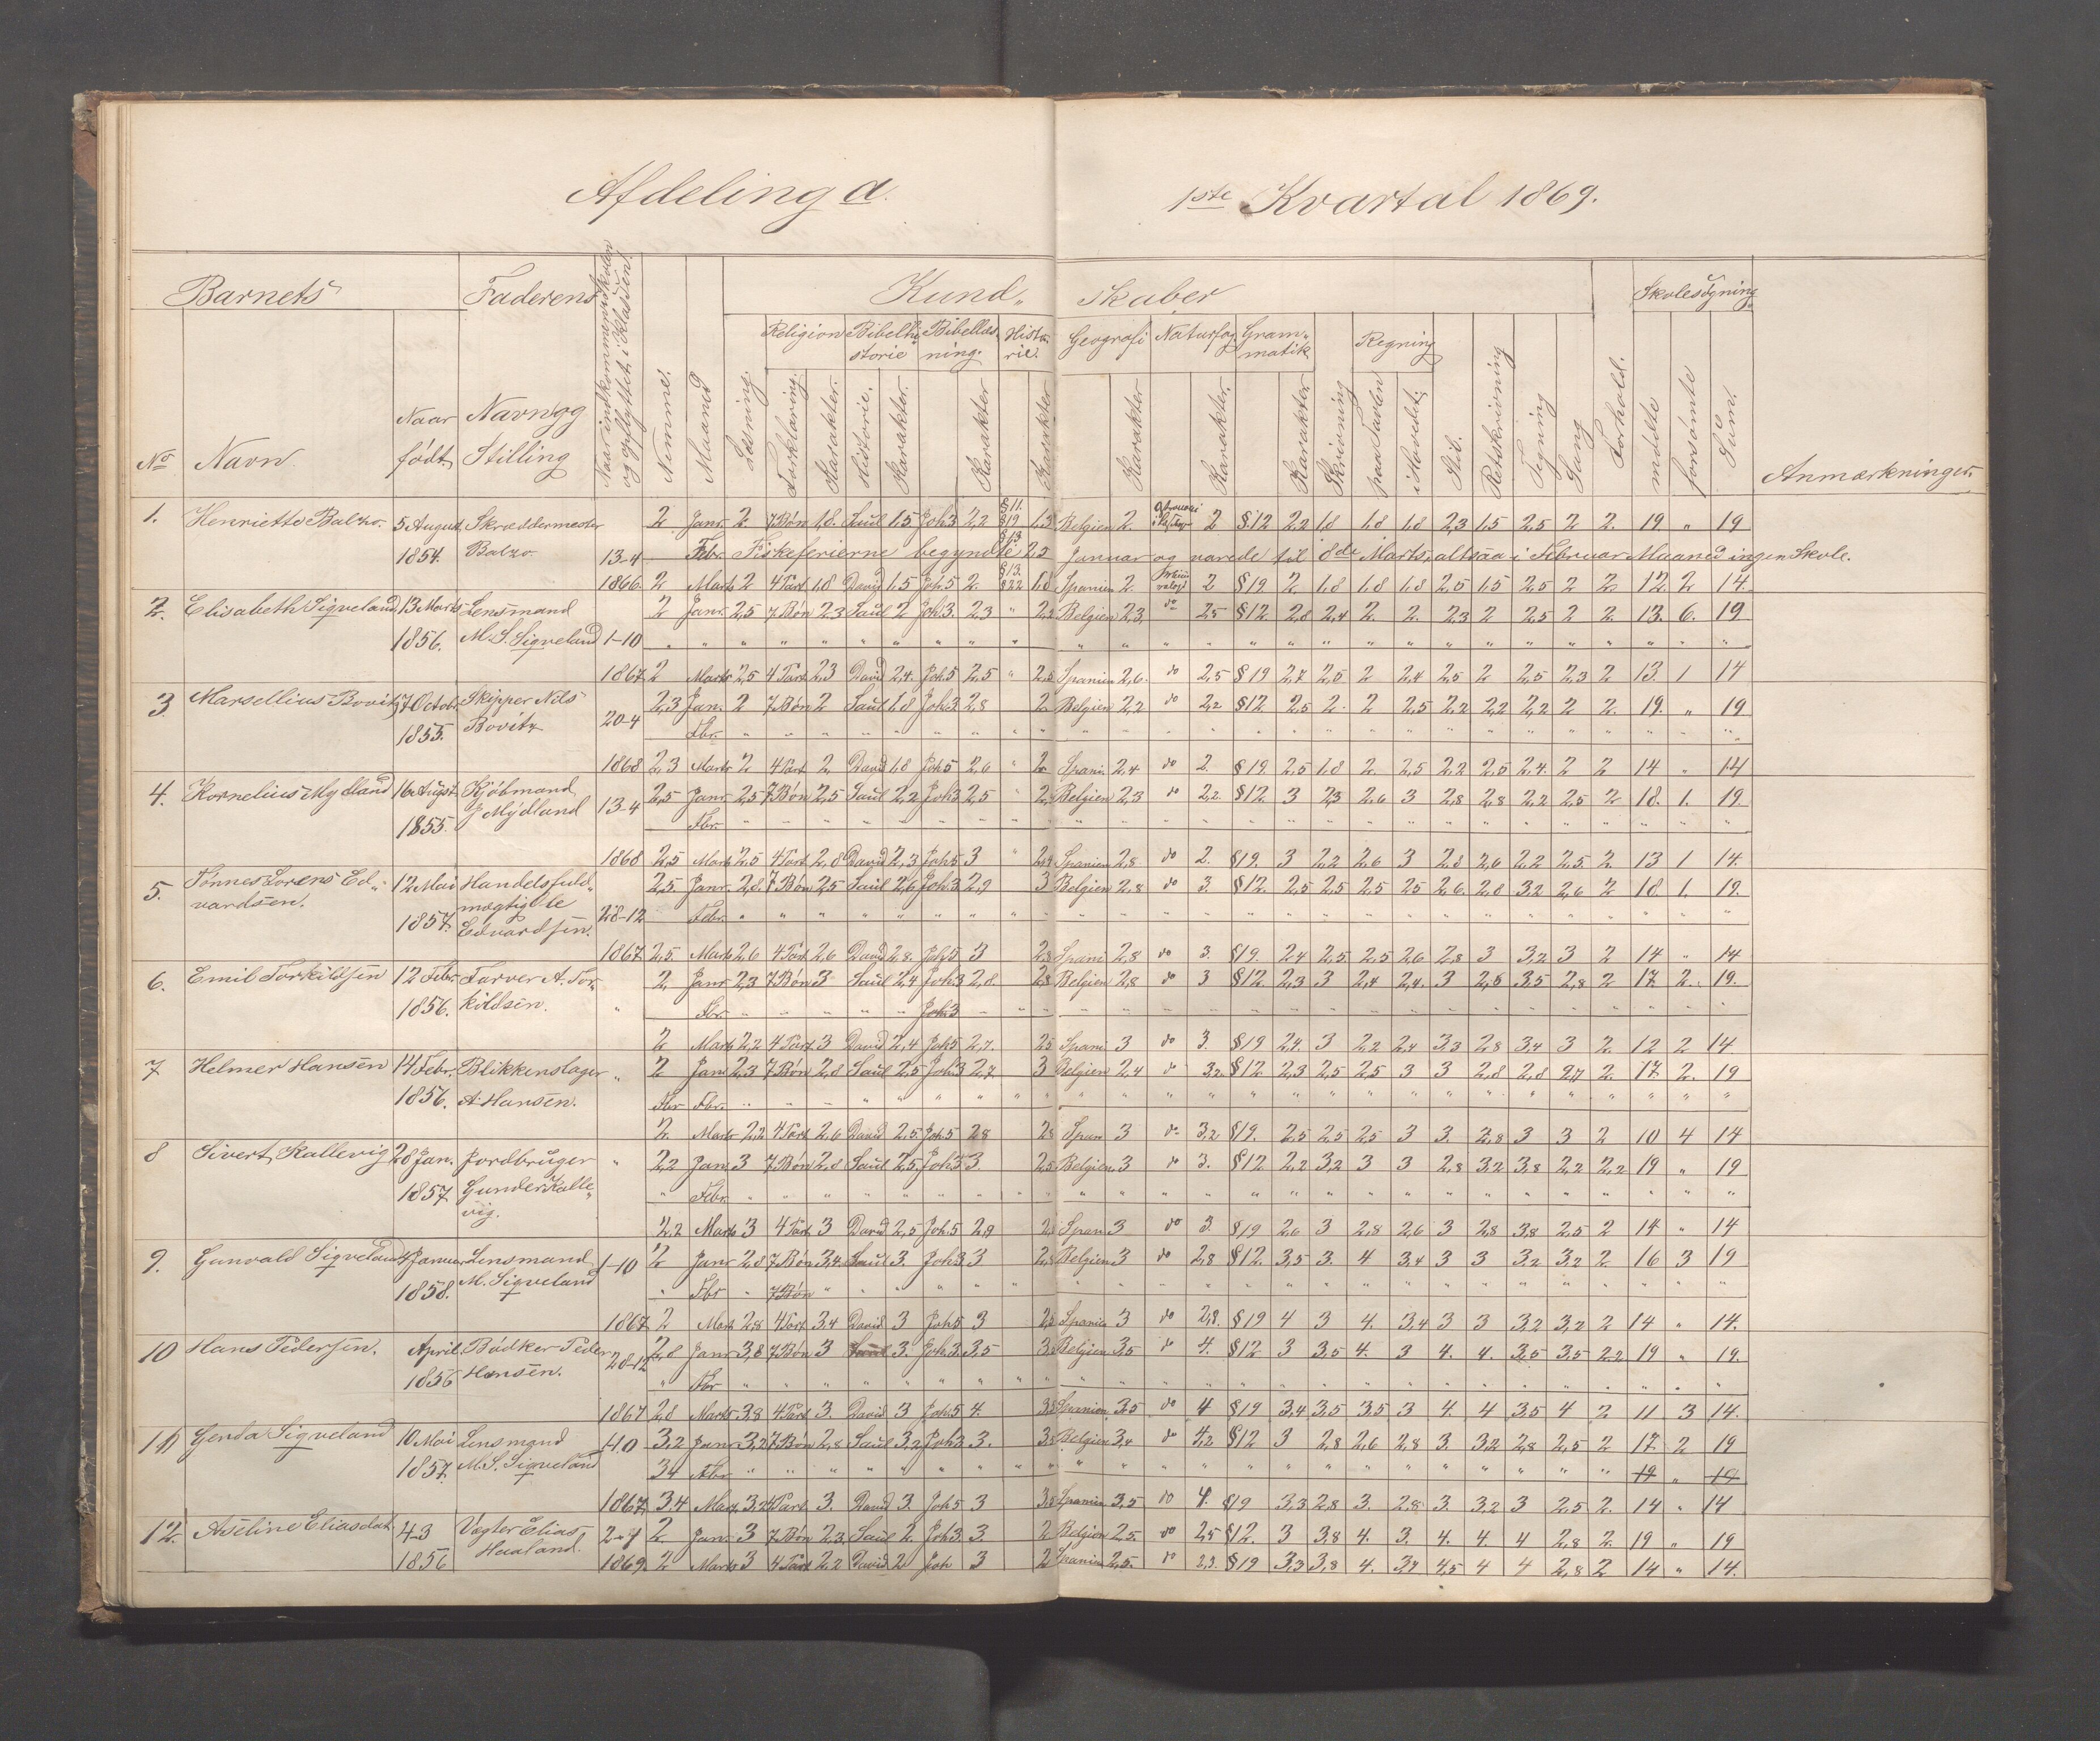 Afdeling a. 1ste Kvartal 1869.
Barnets Faderens Kund„ skaber Skolesøgning
Religion Bibelhistorie Bibellæsning. Historie. Geografi Naturfag Grammatik Regning
No Navn Naar født. Navn og Stilling Naar indkommen i Skolen og opflyttet i Klassen. Nemme. Maaned Læsning. Forklaring. Karakter. Historie. Karakter. Karakter Karakter Karakter Karakter. Karakter Skrivning paa Tavlen i Hovedet. Stil. Retskrivning Tegning Sang Forhold. mødte forsømte Sum. Anmærkninger.
1. Henriette Balzo. 5 August Skræddermester 2 Janr. 2. 7 Bøn 1,8. Saul 1,5 Joh. 3 2,2 § 11. § 12 1,5 Belgien 2. 2 §. 12 2,2 1,8 1,8 1,8 2,3 1,5 2,5 2 2. 19 „ 19
1854. Balzo 13-4 Febr. Fiskeferierne begyndte 25 Januar og varede til 8de Marts, altsaa i Februar Maaned ingen Skole.
1866. 2 Marts 2 4 Part. 1,8 David 1,5 Joh. 5 2. § 13. § 22 1,8 Spanien 2. 2 § 19. 2. 1,8 1,8 1,8 2,5 1,5 2,5 2 2 12. 2 14.
2. Elisabeth Sigveland 13 Marts Lensmand 2 Janr. 2,5 7 Bøn 2,3 Saul 2 Joh. 3. 2,3 „ 2,2 Belgien 2,3. do 2,5 § 12. 2,8 2,4 2. 2. 2,3 2 2,5 2 2. 13. 6. 19
1856. M. S. Sigveland 1-10 „ „ „ „ „ „ „ „ „ „ „
1867 2 Marts 2,5 4 Part. 2,3 David 2,4. Joh. 5 2,5 „ 2,5 Spanien 2,6. do 2,5 § 19 2,7 2,5 2 2,4 2,5 2 2,5 2,3 2 13. 1 14
3 Marsellius Bovitz 7 Octobr. Skipper Nils 2,3 Jan. 2 7 Bøn 2 Saul 1,8 Joh. 3 2,8 2 Belgien 2,2 do 2,2 § 12. 2,5 2. 2 2,5 2,2 2,2 2,2 2 2. 19. „ 19
1855. Bovitz 20-4 Fbr. „ „ „ „ „ „ „ „
1868 2,3 Marts 2 4 Part. 2. David 1,8 Joh. 5 2,6 „ 2 Spani. 2,4 do 2. § 19. 2,5 1,8 2. 2,5 2,2 2,5 2,4. 2 2 14 „ 14
4. Kornelius Mydland 16 Augst. Kjøbmand 2,5 Janr. 2,5 7 Bøn 2,5 Saul 2,2 Joh. 3 2,5 „ 2, Belgien 2,3 do 2,2. § 12. 3 2,3 2,6 3 2,8 2,8 2,2 2,5 2 18. 1. 19.
1855. J Mydland 13-4 Fbr. „ „ „ „ „ „ „ „
1868 2,5 Marts 2,5 4 Part. 2,8 David 2,3 Joh. 5 3 „ Spanien 2,8 do 2. § 19. 3 2,2 2,6 3 2,8 2,6 2,2 2,5 2. 13 1 14.
5. Tønnes Lorens Ed„ 12 Mai Handelsfuld„ 2,5. Janr. 2,8. 7 Bøn 2,5 Saul 2,6 Joh. 3 2,9 3 Belgien 2,8 do 3. § 12. 2,5 2,5 2,5 25 2,6. 2,8 3,2 2,6 2 18. 1. 19.
vardsen. 1857. mægtigede Edvardsen. 28-12 Febr. „ „ „ „ „ „ „ „
1867 2,5. Marts 2,6 4 Part. 2,6 David 2,8. Joh. 5 3 2,8 Spani 2,8 do 3. § 19. 2,4 2,5 2,5 2,6 2,8 3 3,2 3 2 14 „ 14
6. Emil Torkildsen 12 Febr. Farver A. Tor„ 2 Janr 2,3 7 Bøn 3 Saul 2,4 Joh. 3 2,8. 2,8 Belgien 2,8 do 3 § 12. 2,3 3 2,4 2,4. 3 2,8 3,5 2,8 2 17. 2. 19.
1856. kildsen. „ Fbr. „ „ „ „ „ Joh. 3 „ „
2 Marts 2,2 4 Part. 3 David 2,4 Joh. 5 2,7. 25 Spani 3 do 3. § 19 2,4. 3 2,2 2,4 3,3 2,8 3,4 3 2. 12 2 14.
7 Helmer Hansen 14 Febr. Blikkenslager „ 2 Jan. 2,3 7 Bøn 2,8 Saul 2,5 Joh. 3 2,7 3 Belgien 2,4 do 3,2. § 12. 2,3 2,5 2,5 3 3 2,8 2,8 2,7 2. 17. 2. 19
1856. A. Hansen. Fbr Fbr. „ „ „ „ „ „ „ „
2. Marts 2,2 4 Part. 2,6 David 2,5. Joh. 5 2,8 2,8 Span 3 do 3,2 § 19. 2,5 2,5 2,5 3 3. 2,8 3 3 2 10 4 14
8 Sivert Kallevig 28 Jan. Jordbruger „ 2,2 Jan. 3 7 Bøn 2,8 Saul 2,5. Joh. 3 3 2,5 Belgien 3 do 3. § 12 2,2 3,2 3 3 2,8 3,2 3,8 2,2 2,2 19 „ 19
1857. Gunder Kalle„ vig. „ Febr. „ „ „ „ „ „ „ „
2,2 Marts 3 4 Part. 3 David 2,5 Joh. 5 2,9 2,8 Span 3 do 3. § 19 2,6 3 2,8 2,6 3 2,8 3,8 2,5 2 14 „ 14
9. Gunvald Sigveland 4 Januar Lensmand 1-10 2 Janr 2,8 7 Bøn 3,4. Saul 3. Joh. 3 3 2,8 Belgien 3 do 2,8 § 12. 3,5 3. 4 3,4 3 3 3,2 3,2 2 16 3 19
1858. M. Sigveland „ Fbr „ 7 Bøn „ „ „ „ „ „
1867 2 Marts 2,8 4 Part. 3,4 David 3 Joh. 5 3 2,8 Spanien 3 do 2,8. § 19 4 3 4. 3,4 3 3 3,2 3,2 2 14 „ 14.
10 Hans Pedersen. April Bødker Peder 2,8 Janr 3,8 7 Bøn 3 Saul 3. Joh. 3. 3,5 Belgien 3,5 do 4. § 12 3 3,5 4. 3 4. 4. 3,5 3,5 2,2 19 „ 19.
1856 Hansen. 28-12 „ Fbr „ „ „ „ „ „ „ „
1867 2,8 Marts 3,8 4 Part. 3. David 3 Joh. 5 4. Spanien 3,5 do 4 § 19 3,4 3,5 3,5 3 4. 4 3,5 4 2 11 3 14.
11 Gerda Sigveland 10 Mai Lensmand 3,2 Janr 3,2 7 Bøn 2,8 Saul 3,2 Joh. 3 3. Belgien 3,4 do 4,2 § 12 3 2,8 2,6 2,8 3. 3,2 2,8 2,5 2 17. 2 19
1857. M. S. Sigveland 34 Fbr „ „ „ „ „ „ „ „ 19 „ 19
1867. 3,4 Marts 3,2 4 Part. 3. David 3. Joh. 5 3 Spanien 3,5 do 4. § 19 3,3 2,8 3. 2,8 3. 3,2 3 2,5 2. 14 „ 14
12. Aseline Eliasdat. 4-3 Vægter Elias 2 Jan. 3 7 Bøn 2,3. Saul 2. Joh. 3. 3. 2 Belgien 2,5. do 2,5 § 12. 3 3,8 4. 3. 4. 4. 4 2,8 2. 19 „ 19
1856 Haaland. 1869. 2 Marts 3 4 Part 2,2 David 2 Joh 3 2 Spanien 2,5. do 2,3. § 19 3,3 3,8 4. 4,5 4 4 2,8 2 14 „ 14.